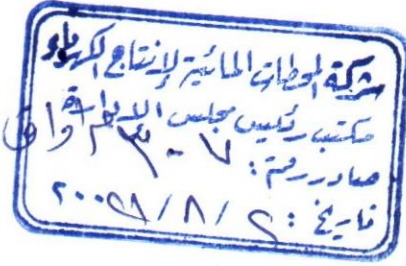 شركة المحطات المائية لإنتاج الكهرباء
مكتب رئيس مجلس الإدارة
صادر رقم : ٣٠٧
تاريخ : ٢ / ٨ / ٢٠٠